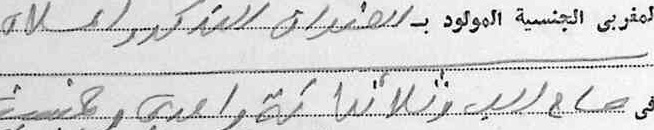 لمغربى الجنسية المولود بـ العنوان المذكور اعلاه
فى عام الف وثلاثمائة واحدى وخمسين